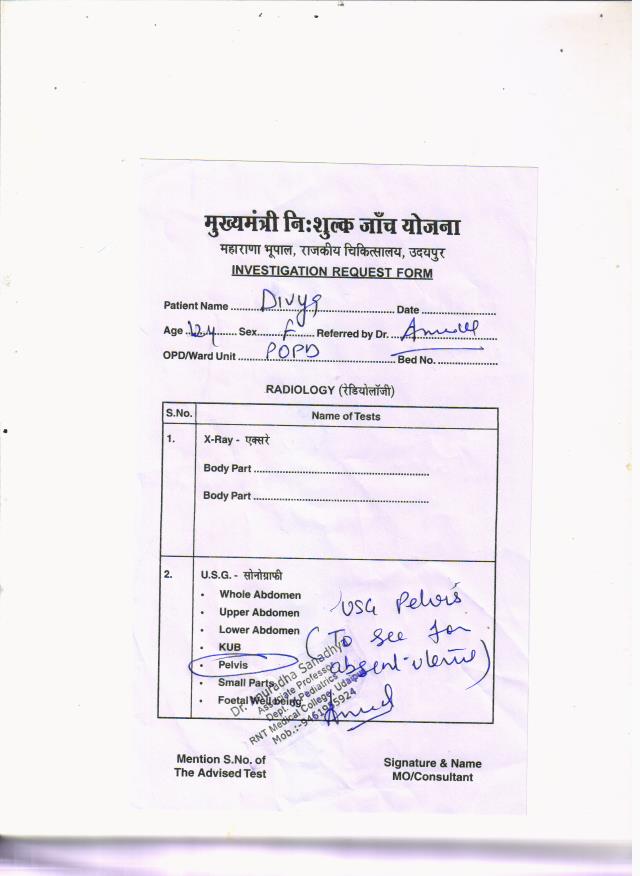 मुख्यमंत्री नि:शुल्क जाँच योजना
महाराणा भूपाल, राजकीय चिकित्सालय, उदयपुर
INVESTIGATION REQUEST FORM
Patient Name ........ Divya ........ Date ........
Age ........ Sex ........ F ........ Referred by Dr. ........
OPD/Ward Unit ........ POPD ........ Bed No. ........
RADIOLOGY (रेडियोलॉजी)
S.No. Name of Tests
1. X-Ray - एक्सरे
Body Part ........
Body Part ........
2. U.S.G. - सोनोग्राफी
• Whole Abdomen
• Upper Abdomen
• Lower Abdomen
• KUB
• Pelvis
• Small Parts
• Foetal Well being
USG Pelvis
(To see for
absent uterus)
Dr. Anuradha Sanadhya
Associate Professor
Dept. of Pediatrics
RNT Medical College, Udaipur
Mob.:-
Mention S.No. of
The Advised Test
Signature & Name
MO/Consultant